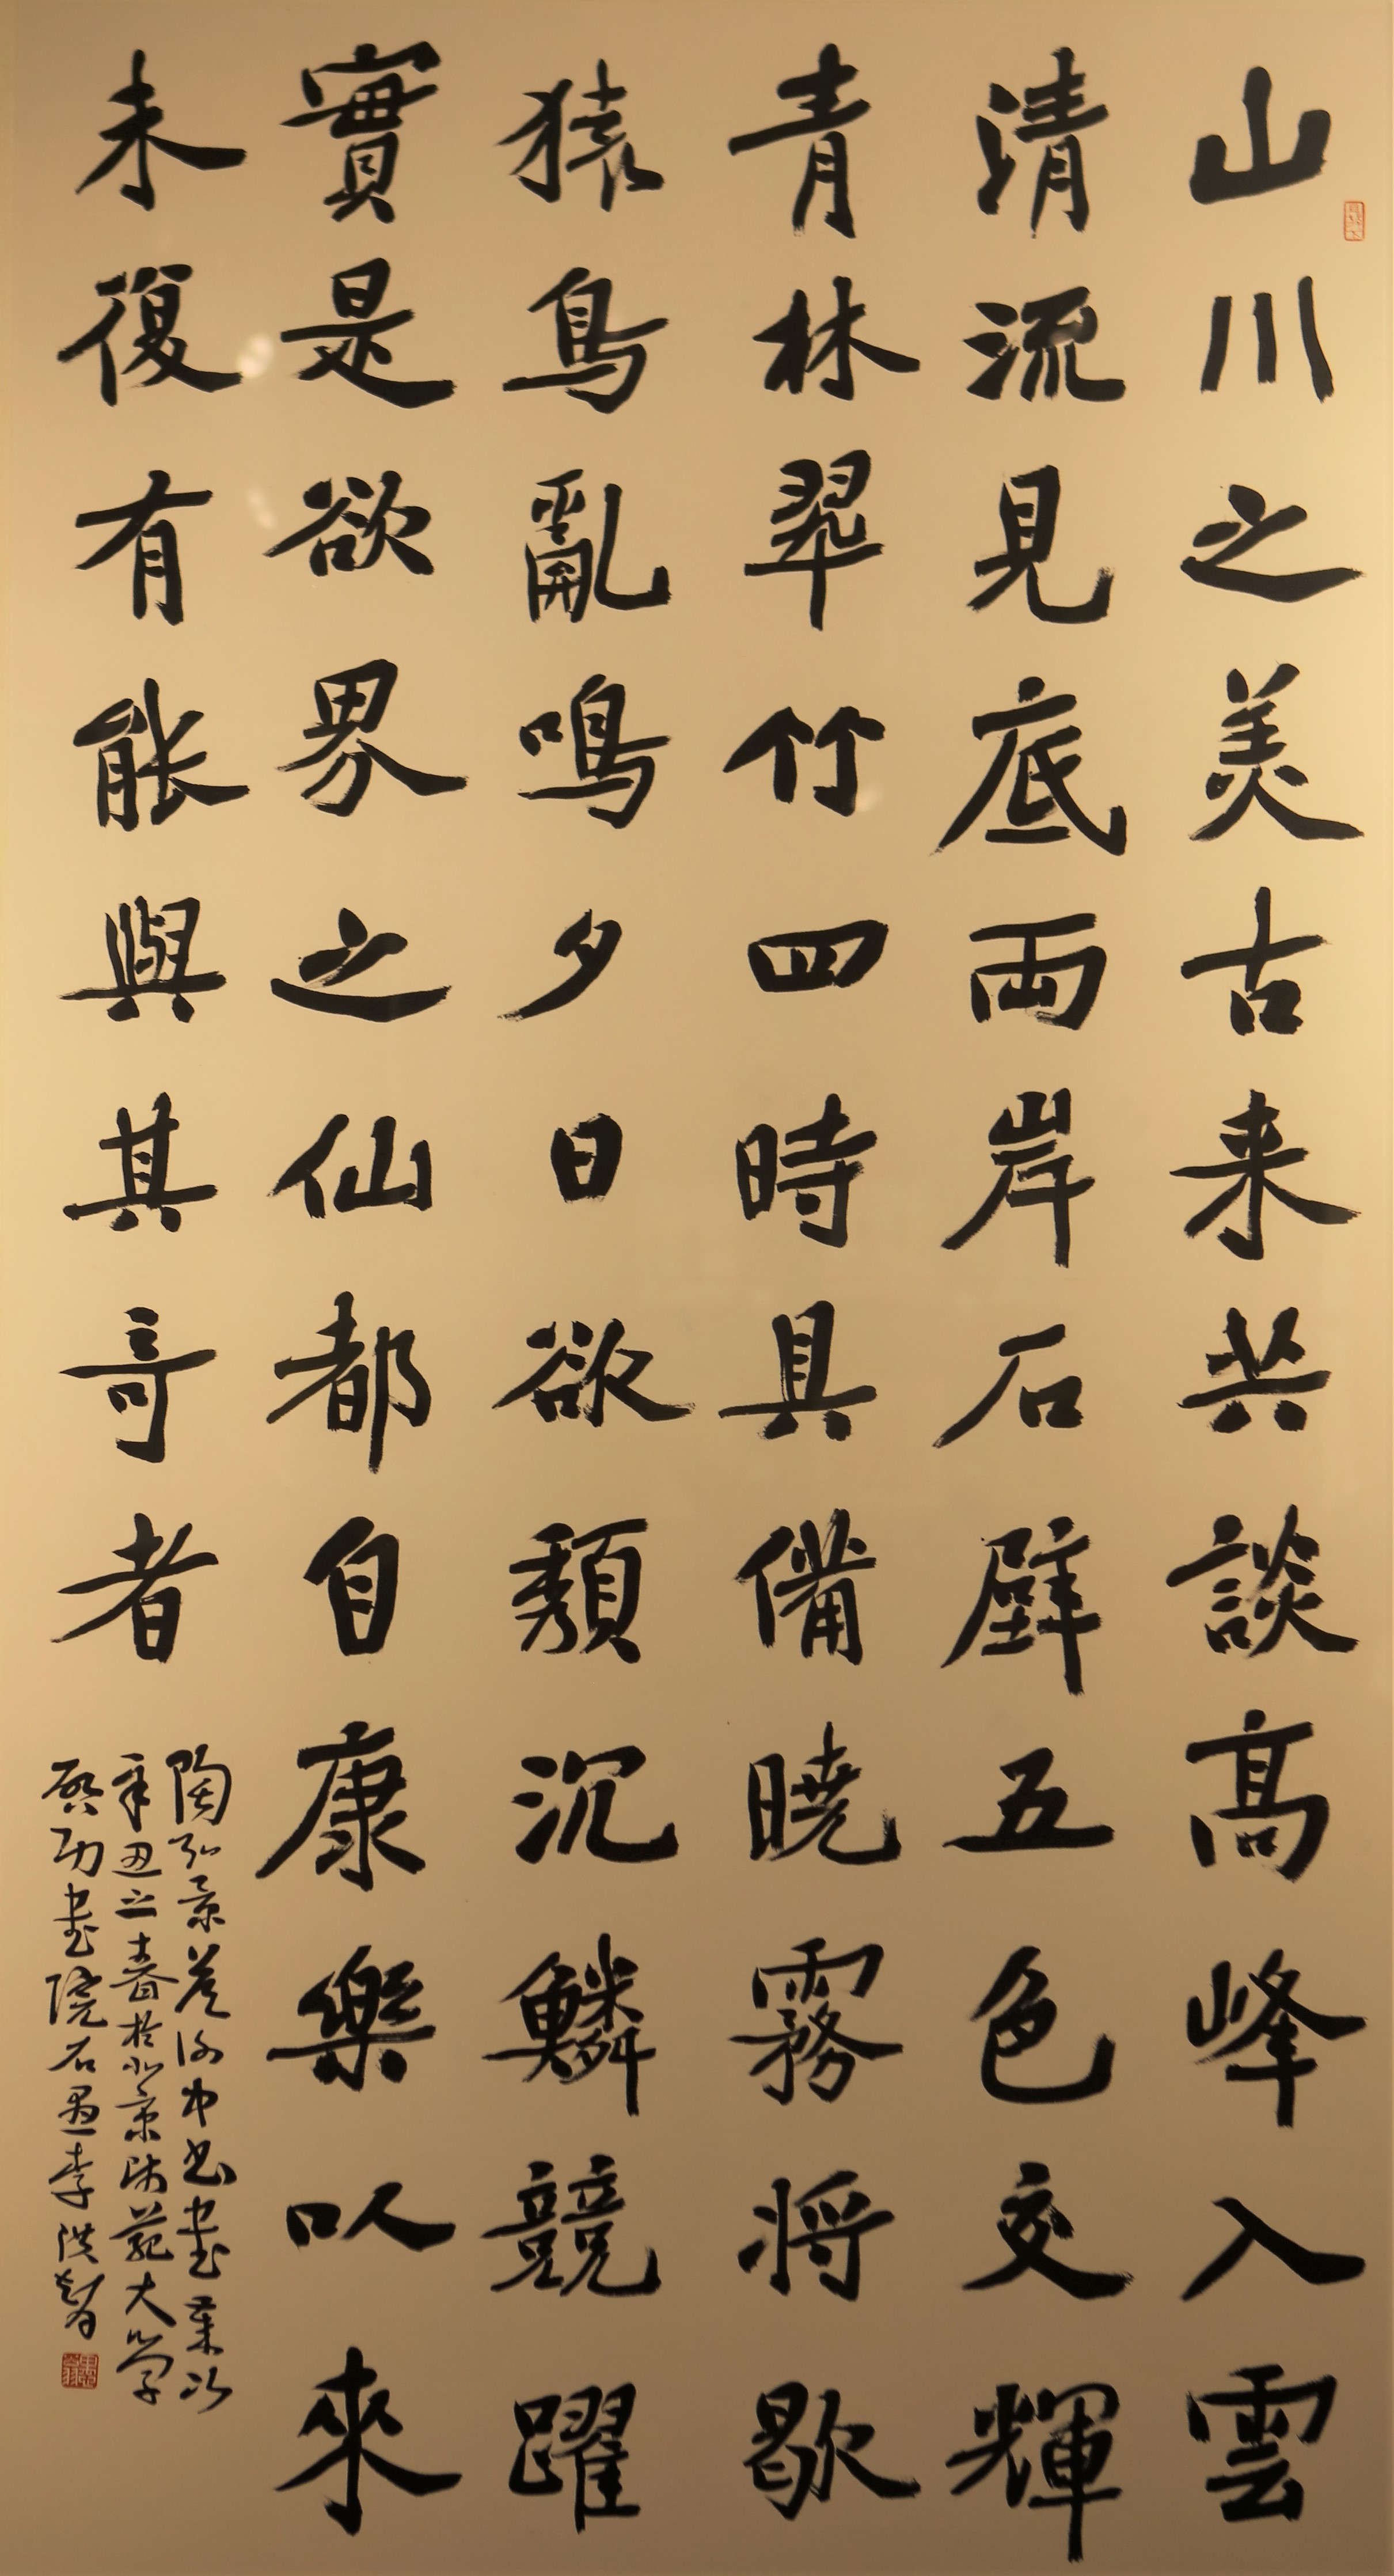 山川之美古来共談高峰入雲
清流見底兩岸石壁五色交輝
青林翠竹四時具備曉霧将歇
猿鳥亂鳴夕日欲頹沉鱗競躍
實是欲界之仙都自康樂以來
未復有能與其奇者
陶弘景答谢中书書
辛丑之春於北京師範大學
啟功書院石愚李洪智